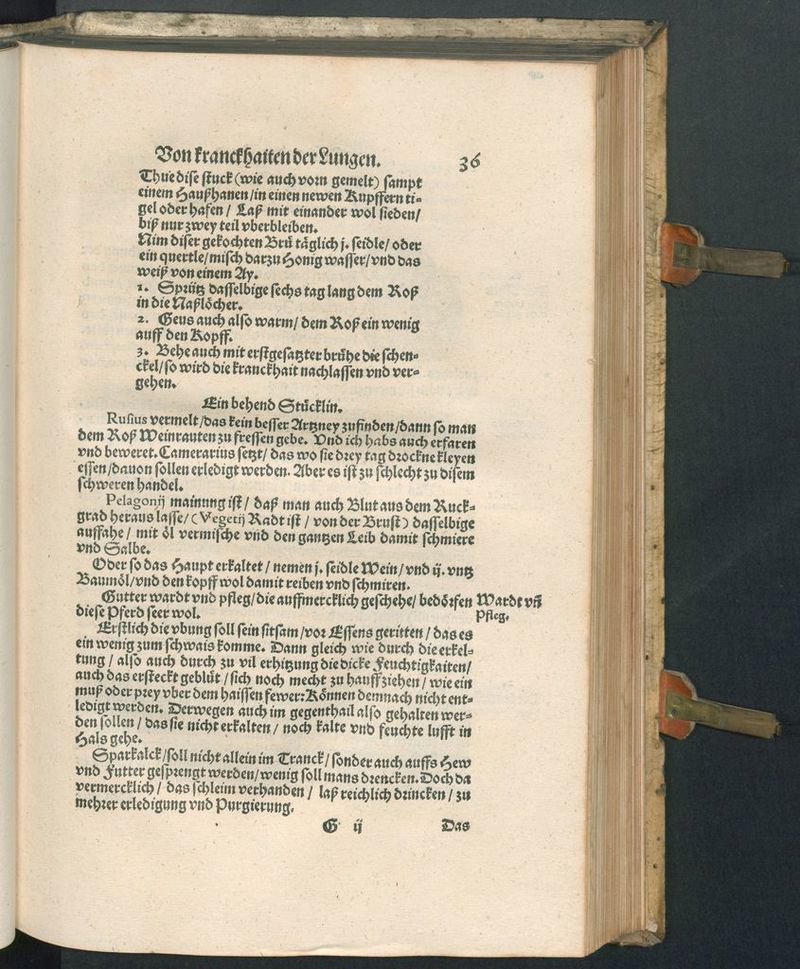 Von kranckhaiten der Lungen. 36
Thue dise stuck (wie auch vorn gemelt) sampt
einem Haußhanen/in einen newen Kupffern ti-
gel oder hafen / Laß mit einander wol sieden/
biß nur zwey teil vberbleiben.
Nim diser gekochten Brü täglich j. seidle/ oder
ein quertle/misch darzu Honig wasser/vnd das
weiß von einem Ay.
1. Sprütz dasselbige sechs tag lang dem Roß
in die Naßlöcher.
2. Geus auch also warm/ dem Roß ein wenig
auff den Kopff.
3. Behe auch mit erstgesatzter brühe die schen-
ckel/so wird die kranckhait nachlassen vnd ver-
gehen.
Ein behend Stücklin.
Rusius vermelt/das kein besser Artzney zufinden/dann so man
dem Roß Weinrauten zu fressen gebe. Vnd ich habs auch erfaren
vnd beweret. Camerarius setzt/ das wo sie drey tag drockne kleyen
essen/dauon sollen erledigt werden. Aber es ist zu schlecht zu disem
schweren handel.
Pelagonij mainung ist / daß man auch Blut aus dem Ruck-
grad heraus lasse/(Vegetij Radt ist / von der Brust) dasselbige
auffahe / mit öl vermische vnd den gantzen Leib damit schmiere
vnd Salbe.
Oder so das Haupt erkaltet / nemen j. seidle Wein/ vnd ij. vntz
Baumöl/vnd den kopff wol damit reiben vnd schmiren.
Gutter wardt vnd pfleg/die auffmercklich geschehe/ bedörfen
diese Pferd seer wol.
Wardt vn̄
Pfleg.
Erstlich die vbung soll sein sitsam/vor Essens geritten / das es
ein wenig zum schwais komme. Dann gleich wie durch die erkel-
tung / also auch durch zu vil erhitzung die dicke Feuchtigkaiten/
auch das ersteckt geblüt /sich noch mecht zu hauff ziehen / wie ein
muß oder prey vber dem haissen fewer: Können demnach nicht ent-
ledigt werden. Derwegen auch im gegenthail also gehalten wer-
den sollen / das sie nicht erkalten / noch kalte vnd feuchte lufft in
Hals gehe.
Sparkalck/soll nicht allein im Tranck/sonder auch auffs Hew
vnd Futter gesprengt werden/wenig soll mans drencken. Doch da
vermercklich / das schleim verhanden / laß reichlich drincken/ zu
mehrer erledigung vnd Purgierung.
G ij Das